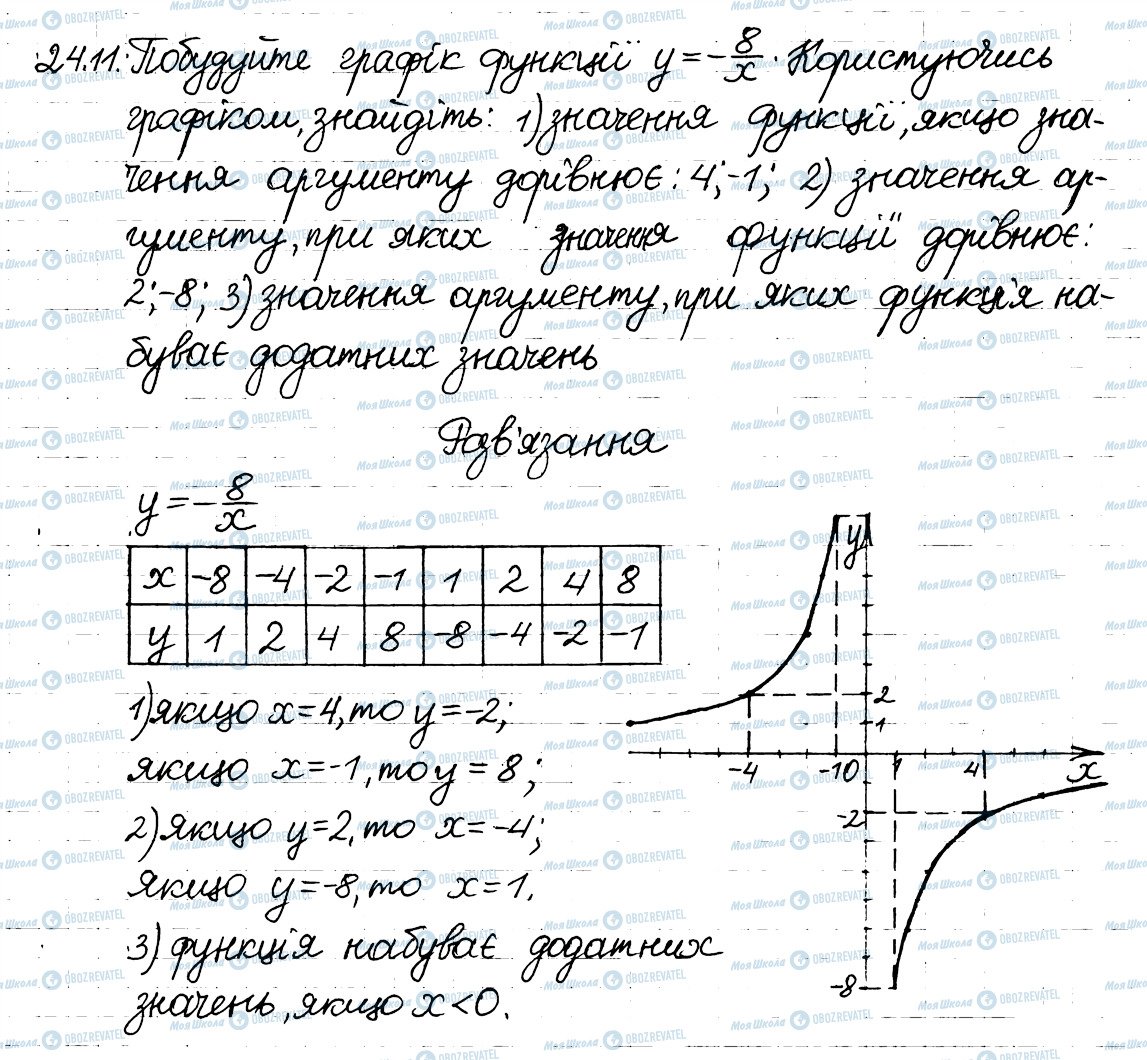 24.11. Побудуйте графік функції y = -8/x. Користуючись
графіком, знайдіть: 1) значення функції, якщо зна-
чення аргументу дорівнює: 4; -1; 2) значення ар-
гументу, при яких значення функції дорівнює:
2; -8; 3) значення аргументу, при яких функція на-
буває додатних значень
Розв'язання
y = -8/x
x -8 -4 -2 -1 1 2 4 8
y 1 2 4 8 -8 -4 -2 -1
1) якщо x = 4, то y = -2;
якщо x = -1, то y = 8;
2) якщо y = 2, то x = -4;
якщо y = -8, то x = 1.
3) функція набуває додатних
значень, якщо x < 0.
y
2
1
-4 -1 0 1 4 x
-2
-8
Моя Школа OBOZREVATEL